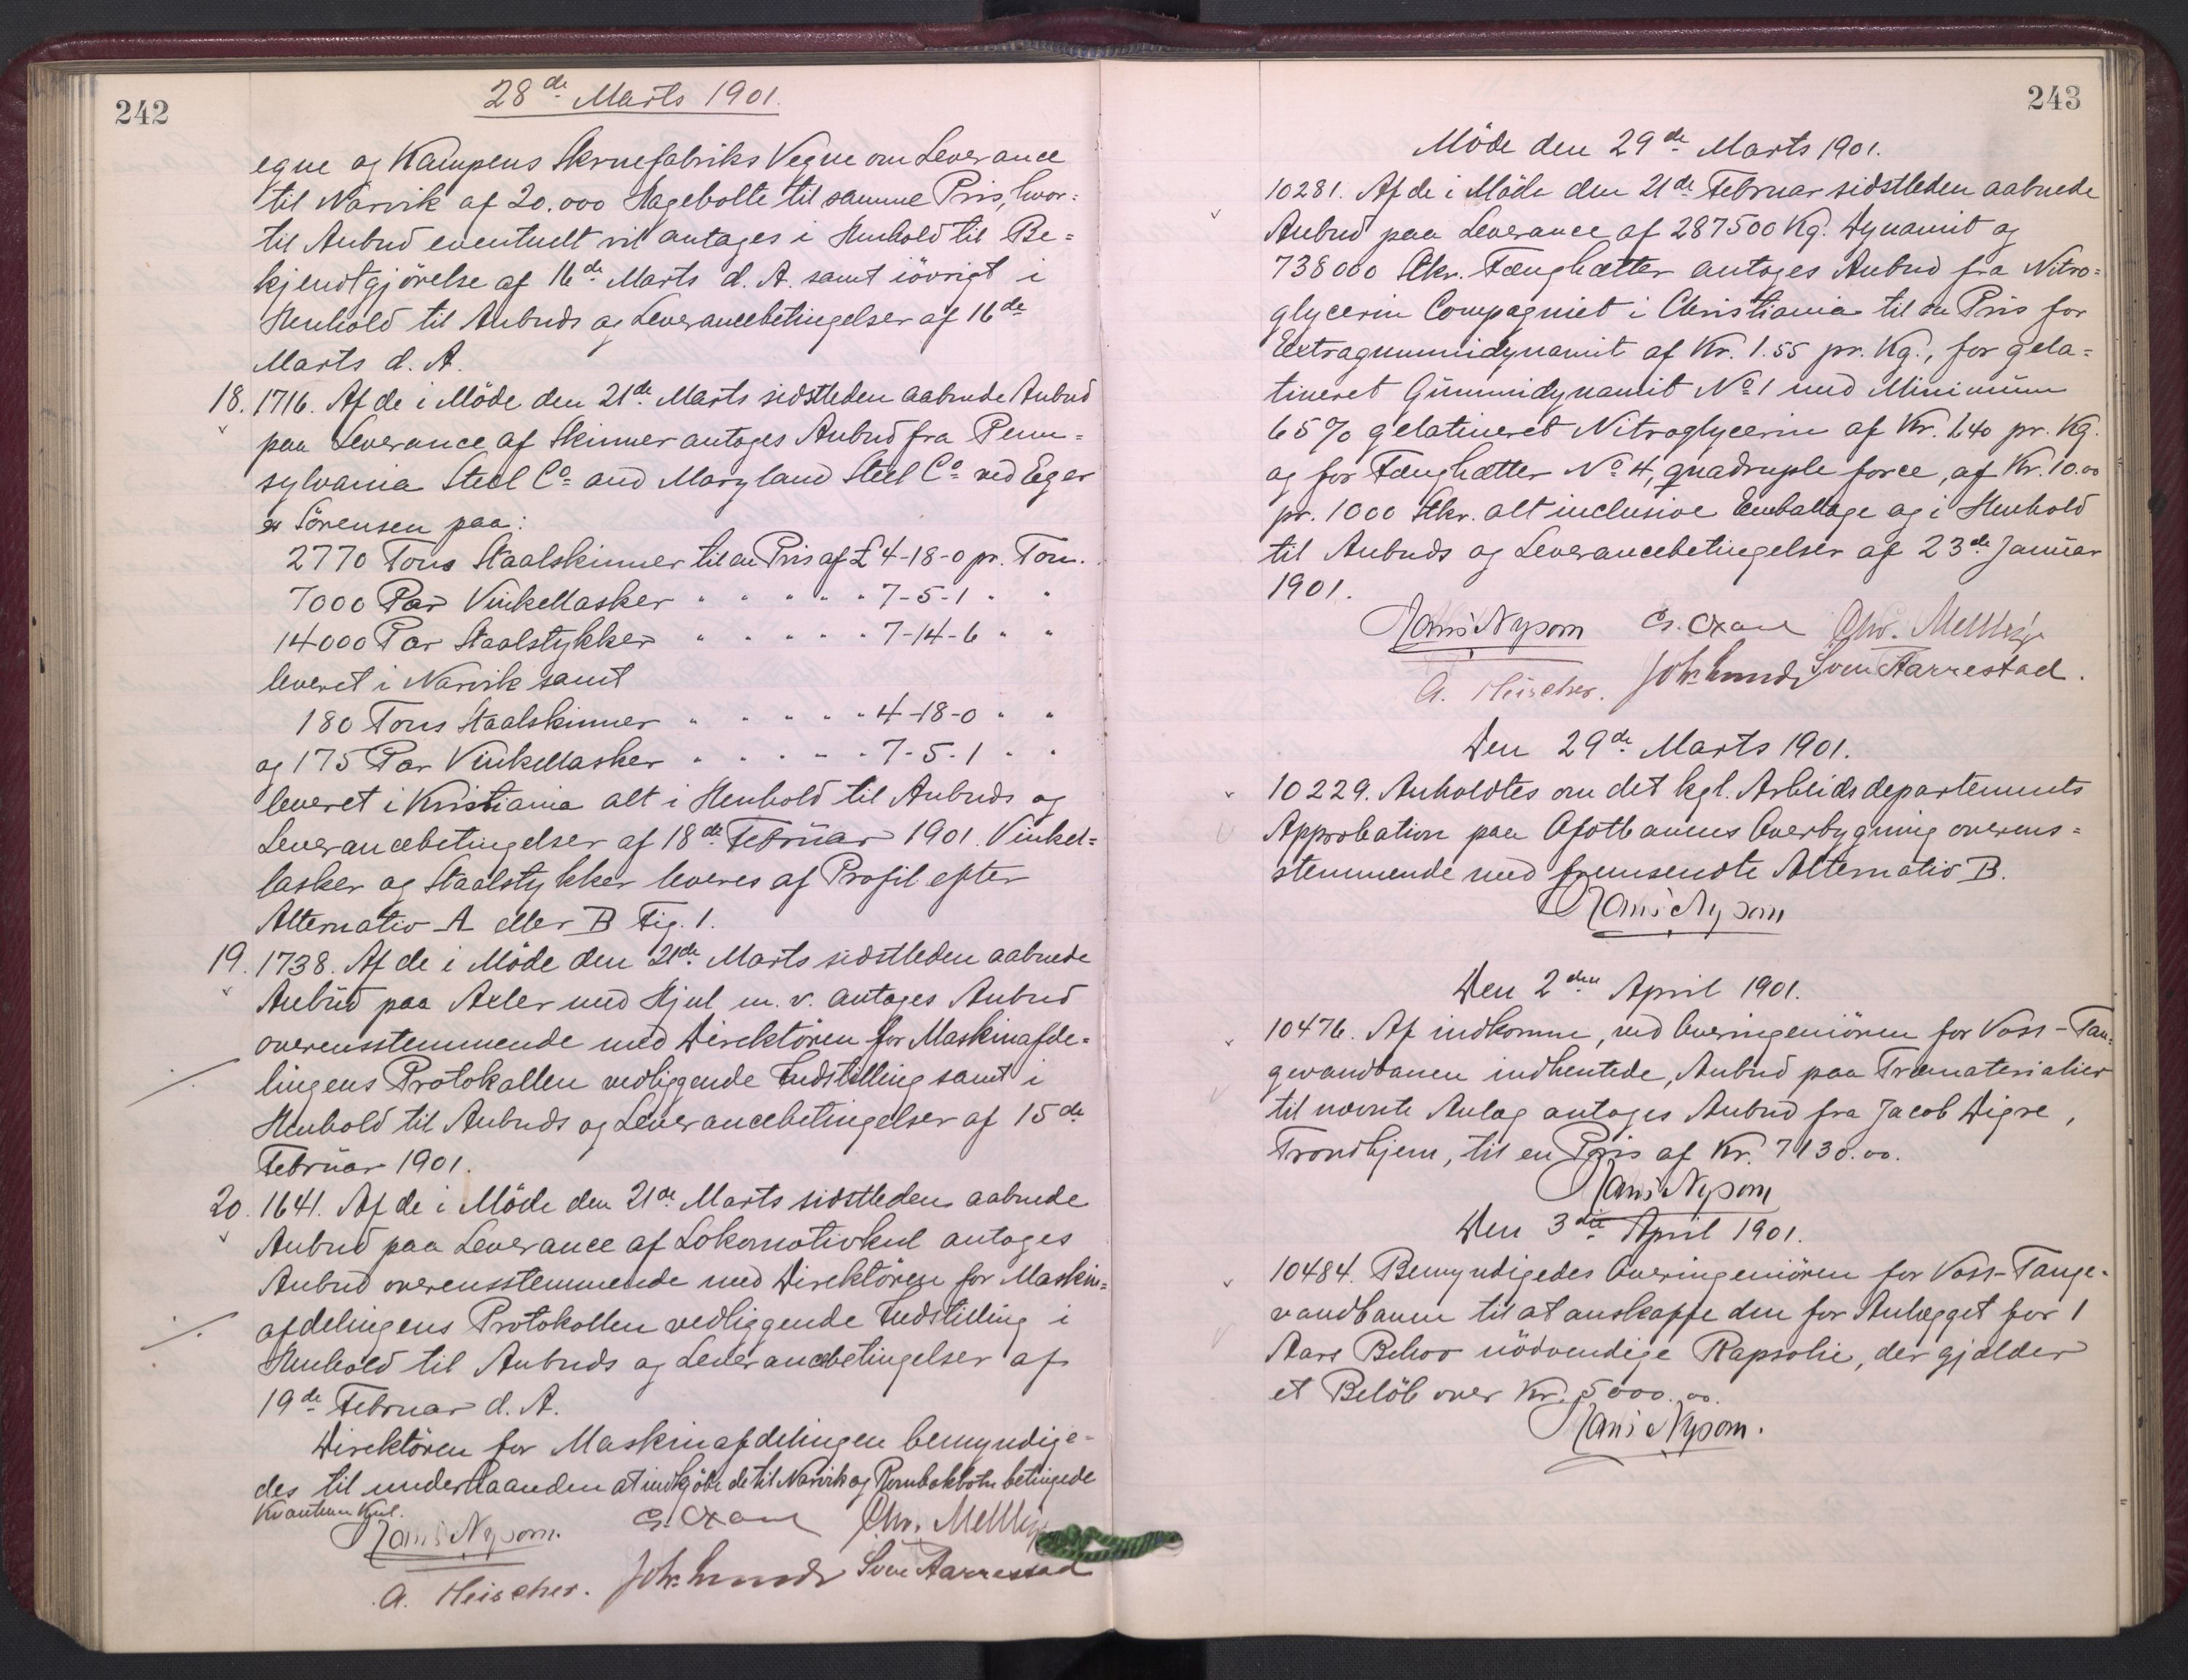 242
28de Marts 1901.
egne og Kampens Skruefabriks Vegne om Leverance
til Narvik af 20.000 Hagebolte til samme Pris, hvor=
til Anbud eventuelt vil antages i Henhold til Be=
kjendtgjörelse af 16de Marts d. A. samt iövrigt i
Henhold til Anbuds og Leverancebetingelser af 16de
Marts d. A.
18. 1716. Af de i Möde den 21de Marts sidstleden aabnede Anbud
paa Leverance af Skinner antages Anbud fra Penn=
sylvania Steel Co and Maryland Steel Co ved Eger
& Sörensen paa:
2770 Tons Staalskinner til en Pris af £ 4-18-0 pr. Ton.
7000 Par Vinkellasker " " " " " 7-5-1 " "
14000 Par Staalstykker " " " " " 7-14-6 " "
leveret i Narvik samt
180 Tons Staalskinner " " " " " 4-18-0 " "
og 175 Par Vinkellasker " " " " " 7-5-1 " "
leveret i Kristiania alt i Henhold til Anbuds og
Leverancebetingelser af 18de Februar 1901. Vinkel=
lasker og Staalstykker leveres af Profil efter
Alternativ A eller B Fig. 1.
19. 1738. Af de i Möde den 21de Marts sidstleden aabnede
Anbud paa Axler med Hjul m. v. antages Anbud
overensstemmende med Direktören for Maskinafde=
lingens Protokollen vedliggende Indstilling samt i
Henhold til Anbuds og Leverancebetingelser af 15de
Februar 1901.
20. 1641. Af de i Möde den 21de Marts sidstleden aabnede
Anbud paa Leverance af Lokomotivkul antages
Anbud overensstemmende med Direktören for Maskin=
afdelingens Protokollen vedliggende Indstilling i
Henhold til Anbuds og Leverancebetingelser af
19de Februar d. A.
Direktören for Maskinafdelingen bemyndige=
des til underhaanden at indkjöbe de til Narvik og Rombaksbotn betingede
Kvantum Kul.
Hans Nysom. Chr. Mellbye
Joh. Lunde Sven Aarrestad
243
Möde den 29de Marts 1901.
10281. Af de i Möde den 21de Februar sidstleden aabnede
Anbud paa Leverance af 287500 Kg. Dynamit og
738000 Stkr. Fænghætter antages Anbud fra Nitro=
glycerin Compagniet i Christiania til en Pris for
Extragummidynamit af Kr. 1.55 pr. Kg., for gela=
tineret Gummidynamit No 1 med Minimum
65% gelatineret Nitroglycerin af Kr. 1.40 pr. Kg.
og for Fænghætter No 4, quadruple force, af Kr. 10.00
pr. 1000 Stkr. alt inclusive Emballage og i Henhold
til Anbuds og Leverancebetingelser af 23de Januar
1901.
Hans Nysom Chr. Mellbye
Joh. Lunde Sven Aarrestad.
Den 29de Marts 1901.
10229. Anholdtes om det kgl. Arbeidsdepartements
Approbation paa Ofotbanens Overbygning overens=
stemmende med fremsendte Alternativ B.
Hans Nysom
Den 2den April 1901.
10476. Af indkomne, ved Overingeniören for Voss-Tau=
gevandbanen indhentede, Anbud paa Træmaterialier
til nævnte Anlæg antages Anbud fra Jacob Digre,
Trondhjem, til en Pris af Kr. 7130.00.
Hans Nysom
Den 3die April 1901.
10484. Bemyndigedes Overingeniören for Voss-Tauge=
vandbanen til at anskaffe den for Anlægget for 1
Aars Behov nödvendige Rapsolie, der gjælder
et Belöb over Kr. 5000.00.
Hans Nysom.